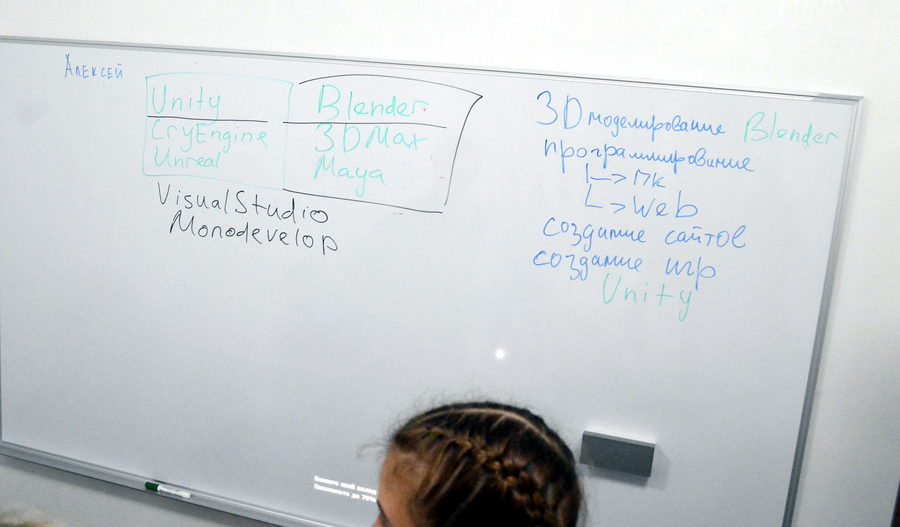 Алексей
Unity
CryEngine
Unreal
Blender
3DMax
Maya
VisualStudio
Monodevelop
3D моделирование Blender
программирование
→ ПК
→ Web
создание сайтов
создание игр
Unity